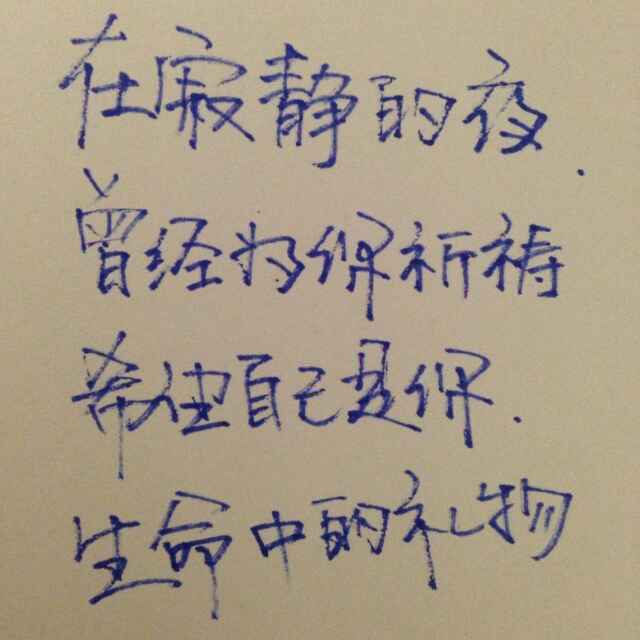 在寂静的夜.
曾经为你祈祷
希望自己是你.
生命中的礼物